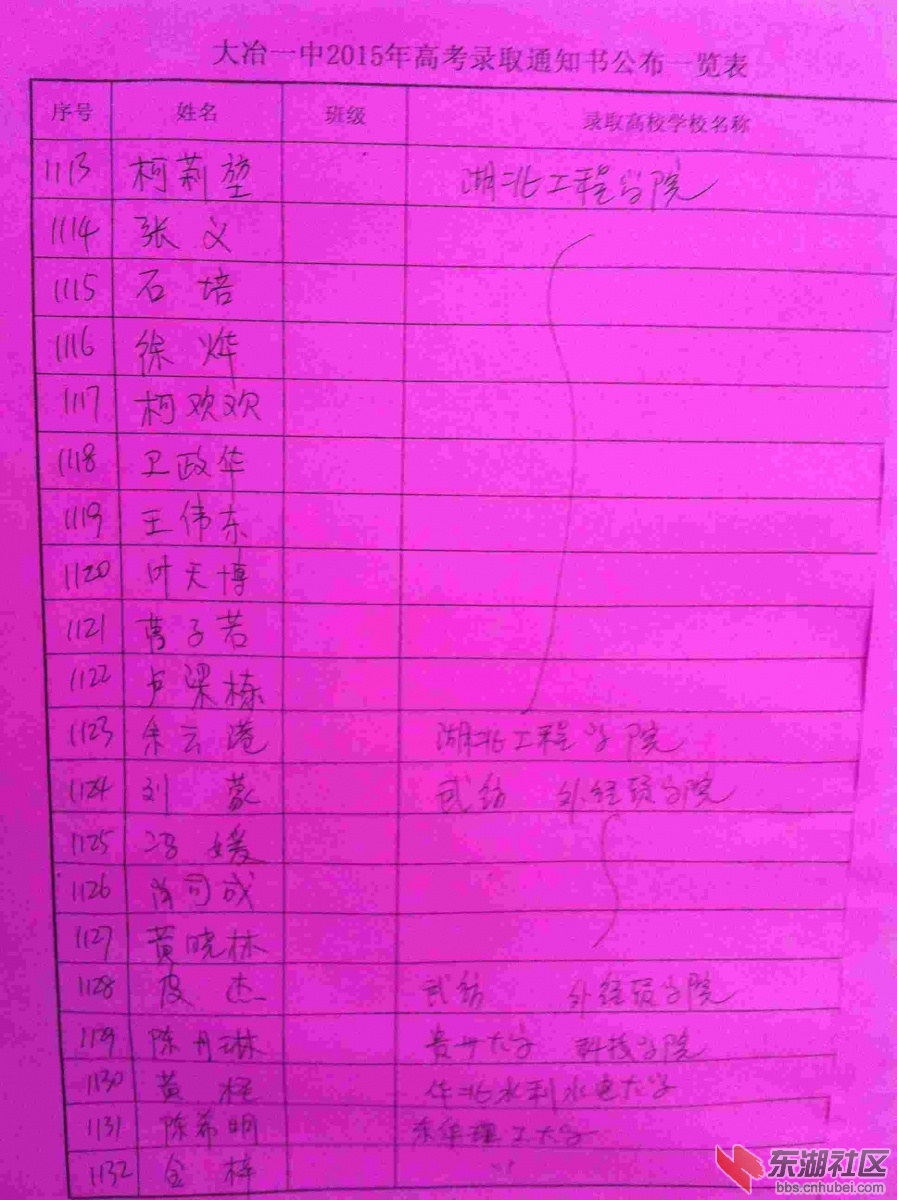 大冶一中2015年高考录取通知书公布一览表
序号 姓名 班级 录取高校学校名称
1113 柯莉堃 湖北工程学院
1114 张义
1115 石培
1116 徐烨
1117 柯欢欢
1118 卫政华
1119 王伟东
1120 叶天博
1121 曹子若
1122 卢梁栋
1123 余云港 湖北工程学院
1124 刘蒙 武纺 外经贸学院
1125 冯媛
1126 司成
1127 黄晓林
1128 皮杰 武纺 外经贸学院
1129 陈丹琳 贵州大学 科技学院
1130 黄 华北水利水电大学
1131 陈希明 东华理工大学
1132 金梓
东湖社区
bbs.cnhubei.com